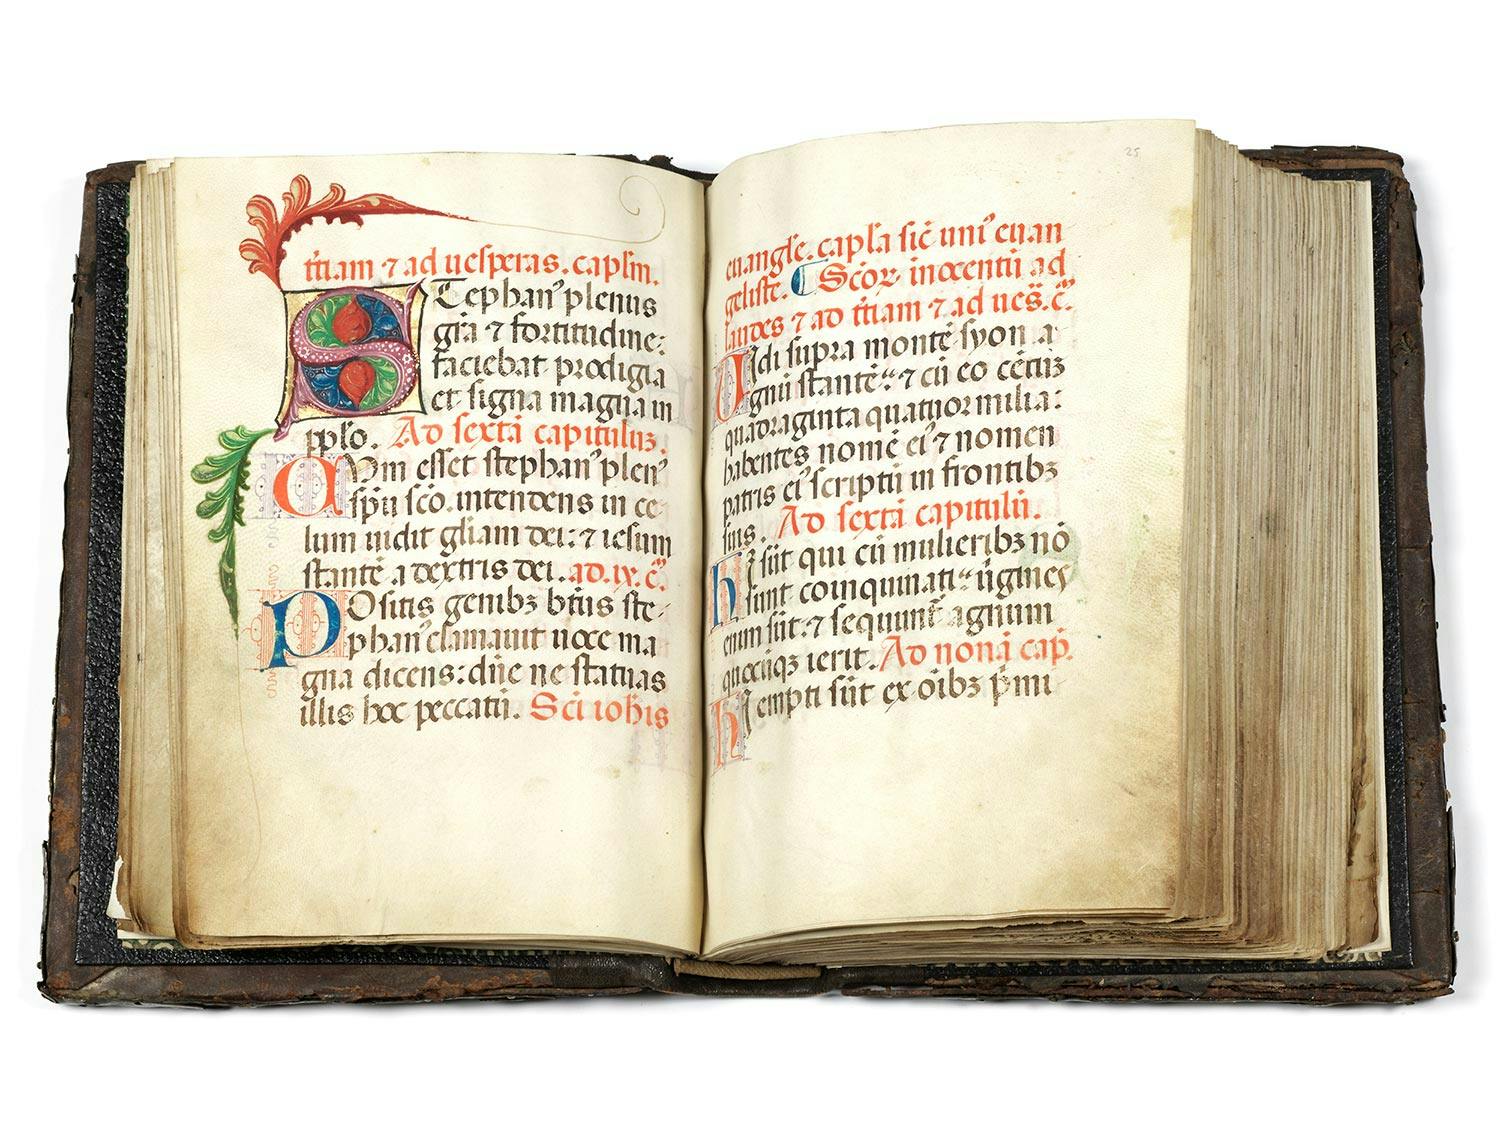 t̄tiam ⁊ ad uesperas. capl̄m.
STephan᷒ plenus
gr̄a ⁊ fortitudine:
faciebat prodigia
et signa magna in
pplo. Ad sextā capituluꝫ.
CUm esset stephan᷒ plen᷒
sp̄u sc̄o. intendens in ce-
lum uidit gl̄iam dei: ⁊ iesum
stantē a dextris dei. ad .ix. c̄.
POsitis genibꝫ b̄tus ste-
phan᷒ clamauit uoce ma
gna dicens: dn̄e ne statuas
illis hoc peccatū. Sc̄i ioh̄is
25
euangl̄e. capl̄a sic̄ uni᷒ euan
geliste. ¶ Sc̄oꝝ inocentū ad
laudes ⁊ ad t̄tiam ⁊ ad ues̄. c̄.
UIdi supra montē syon a-
gnū stantē: ⁊ cū eo cētuꝫ
quadraginta quatuor milia:
habentes nomē ei᷒ ⁊ nomen
patris ei᷒ scriptū in frontibꝫ
suis. Ad sextā capitulū.
hI sūt qui cū mulieribꝫ nō
sunt coinquinati: ūgines
enim sūt: ⁊ sequunt̄ agnum
quocūqꝫ ierit. Ad nonā cap̄.
hI empti sūt ex oībꝫ p̄mi